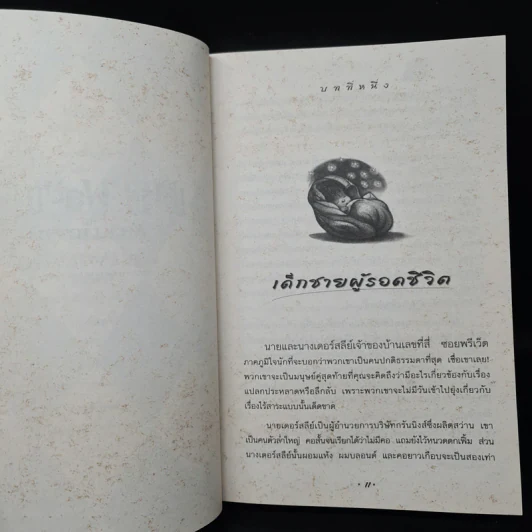 บทที่หนึ่ง
เด็กชายผู้รอดชีวิต
นายและนางเดอร์สลีย์เจ้าของบ้านเลขที่สี่ ซอยพรีเว็ต
ภาคภูมิใจนักที่จะบอกว่าพวกเขาเป็นคนปกติธรรมดาที่สุด เชื่อเขาเลย!
พวกเขาจะเป็นมนุษย์คู่สุดท้ายที่คุณจะคิดถึงว่ามีอะไรเกี่ยวข้องกับเรื่อง
แปลกประหลาดหรือลึกลับ เพราะพวกเขาจะไม่มีวันเข้าไปยุ่งเกี่ยวกับ
เรื่องไร้สาระแบบนั้นเด็ดขาด
นายเดอร์สลีย์เป็นผู้อำนวยการบริษัทกรันนิงส์ซึ่งผลิตสว่าน เขา
เป็นคนตัวล่ำใหญ่ คอสั้นจนเรียกได้ว่าไม่มีคอ แถมยังไว้หนวดดกเฟิ้ม ส่วน
นางเดอร์สลีย์นั้นผอมแห้ง ผมบลอนด์ และคอยาวเกือบจะเป็นสองเท่า
11